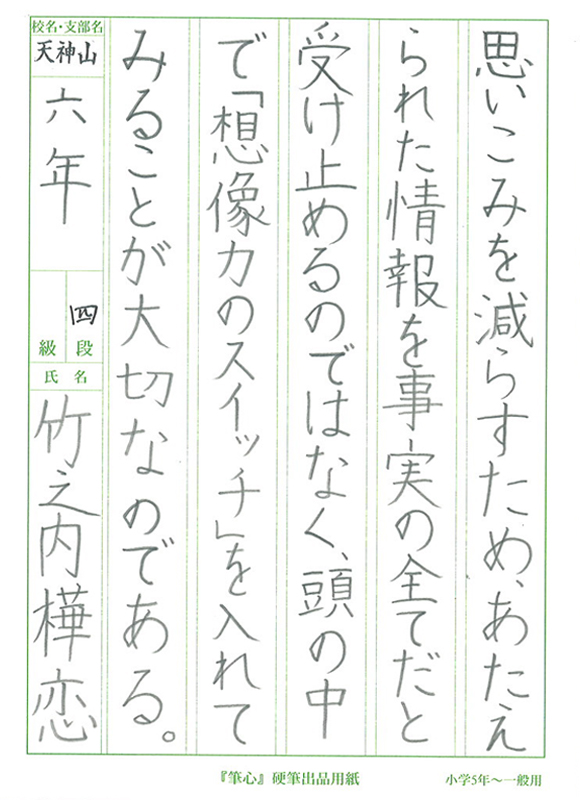 思いこみを減らすため、あたえ
られた情報を事実の全てだと
受け止めるのではなく、頭の中
で「想像力のスイッチ」を入れて
みることが大切なのである。
校名・支部名
天神山
六年
四段
級
氏名
竹之内樺恋
『筆心』硬筆出品用紙
小学5年～一般用